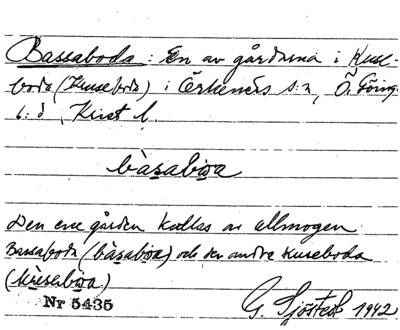 Bassaboda : En av gårdarna i Kuse-
boda (Kuseboda) i Örkeneds s:n, Ö. Göinge
h:d, Krist. l.
bàsabωa
Den ene gården kallas av allmogen
Bassaboda (bàsabωa) och den andre Kuseboda
(kùsebωa.)
Nr 5435 G. Sjöstedt 1942